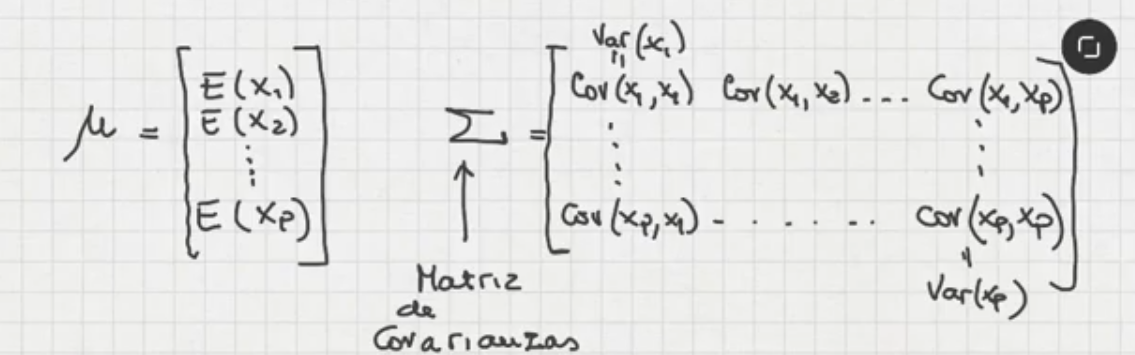 μ = [ E(x₁) E(x₂) ⋮ E(xp) ]
Σ = [ Var(x₁)
Cov(x₁,x₁) Cov(x₁,x₂) ... Cov(x₁,xp)
⋮ ⋮
Cov(xp,x₁) - . . . . . . Cov(xp,xp)
Var(xp) ]
Matriz
de
Covarianzas